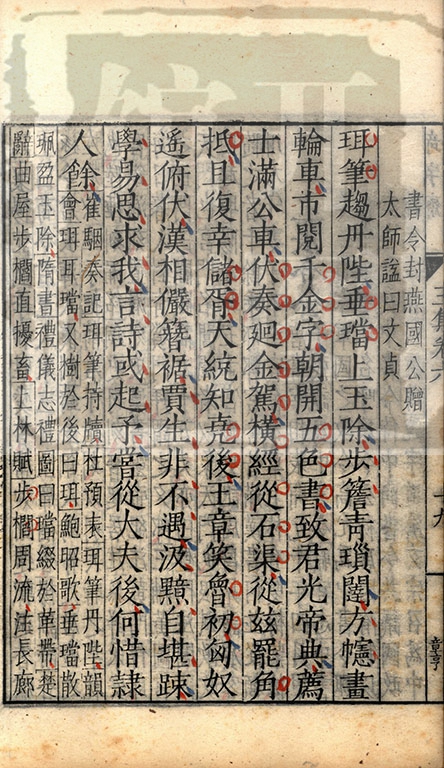 書令封燕國公贈
太師諡曰文貞
珥筆趨丹陛垂璫上玉除步簷青瑣闥方幰畫
輪車市閱千金字朝開五色書致君光帝典薦
士滿公車伏奏廻金駕橫經從石渠從茲罷角
抵且復幸儲胥天統知堯後王章笑魯初匈奴
遙俯伏漢相儼簪裾賈生非不遇汲黯自堪踈
學易思求我言詩或起予嘗從大夫後何惜隸
人餘
崔駰奏記珥筆持牘杜預表珥筆丹陛韻
會珥耳璫又樹於後曰珥鮑昭歌垂璫散
珮盈玉除隋書禮儀志禮圖曰璫綴於革帶楚
辭曲屋步櫩直擾畜上林賦步櫩周流注長廊
章亨